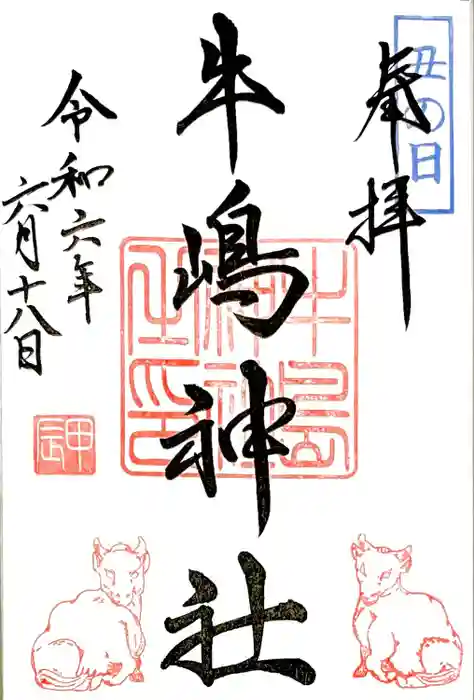 丑の日
奉拝
牛嶋神社
令和六年
六月十八日
牛島神社之印
甲辰